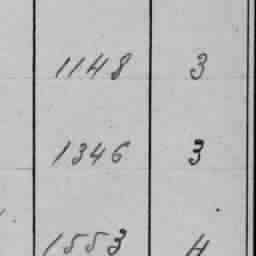 1148 3
1346 3
1553 4